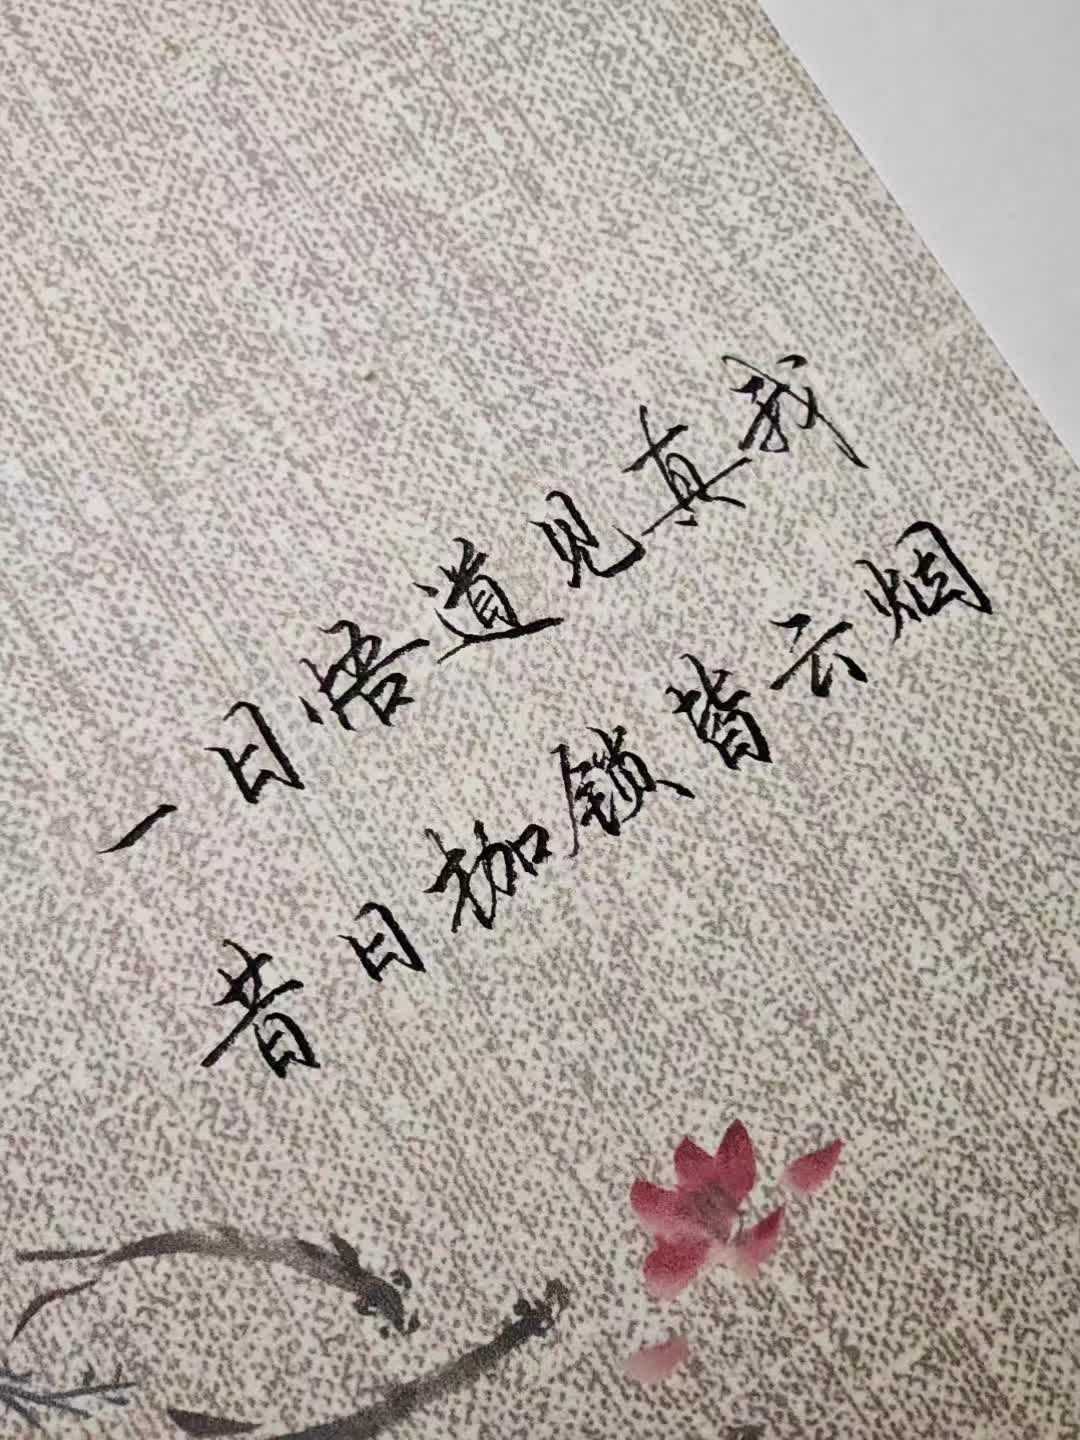 一日悟道见真我
昔日枷锁皆云烟